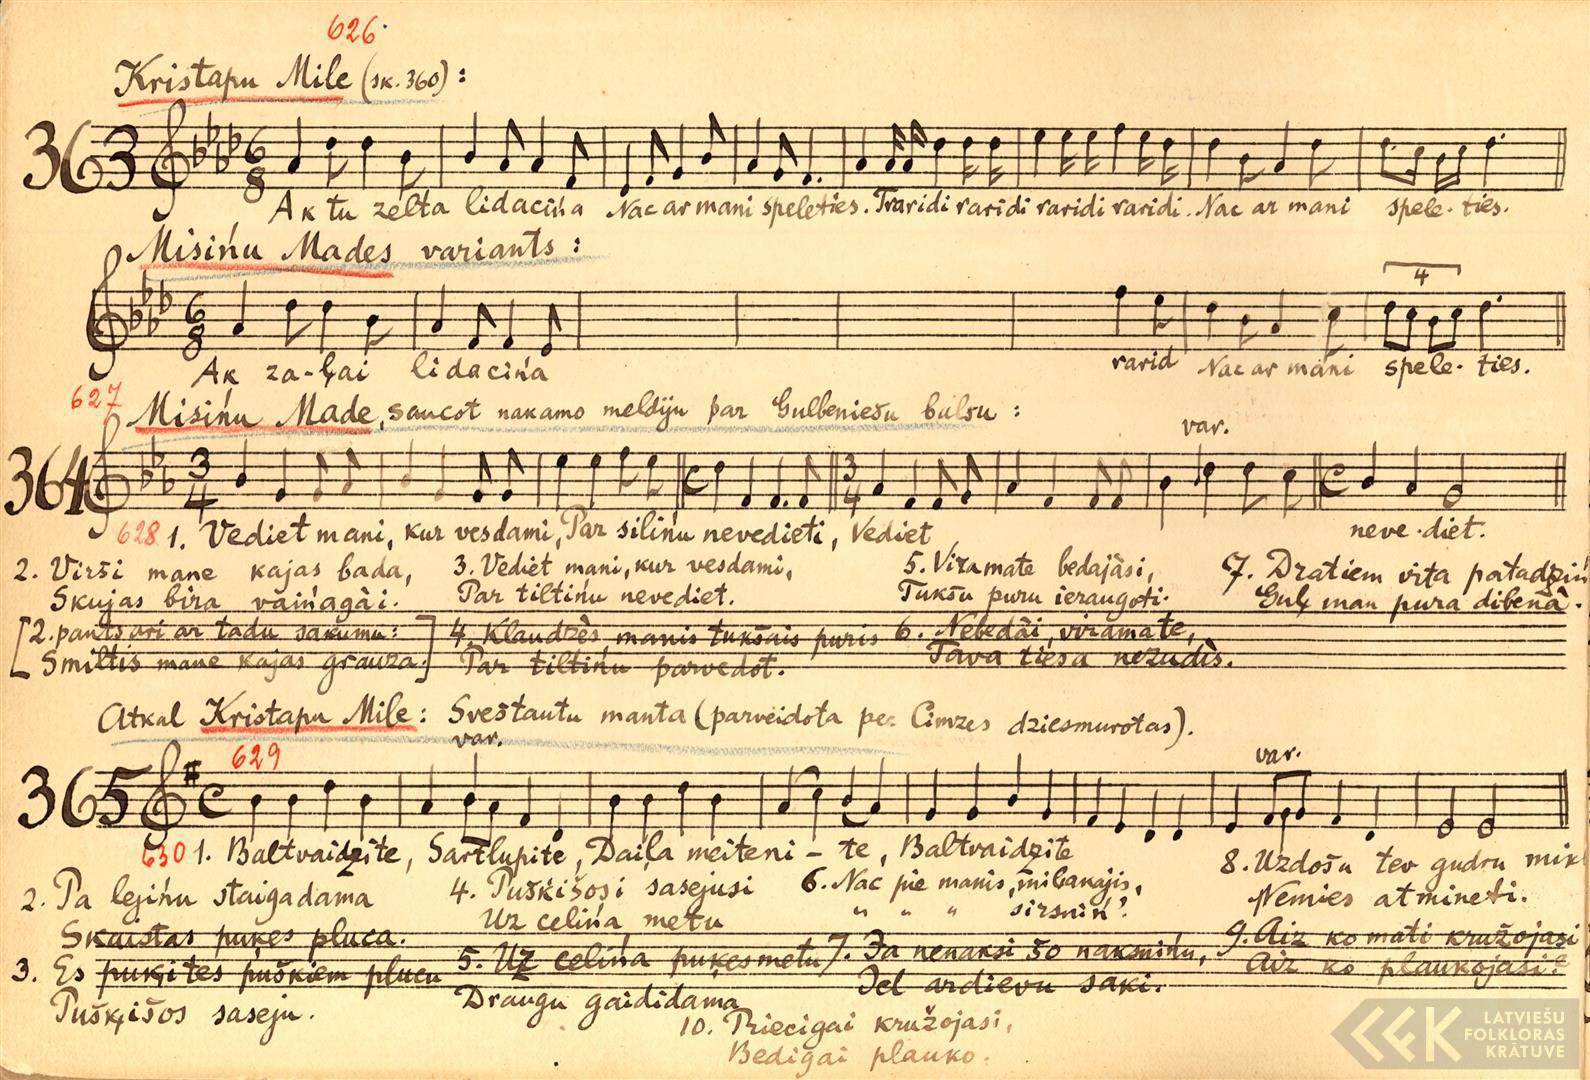 626.
Kristapu Mile (sk. 360) :
363 6 8
Ak tu zelta lidacińa Nac ar mani speleties. Traridi raridi raridi raridi. Nac ar mani spele- ties.
Misińu Mades variants :
6 8 4
Ak za-ļai lidacińa rarid Nac ar mani spele- ties.
627
Misińu Made, saucot nakamo meldiju par Gulbeniešu balsu :
var.
364 3 4 C 3 4 C
628 1. Vediet mani, kur vesdami, Par silińu nevedieti, Vediet neve-diet.
2. Virši mane kajas bada,
Skujas bira vaińagāi.
[2. pants ari ar tadu sakumu:
Smiltis mane kajas grauza.]
3. Vediet mani, kur vesdami,
Par tiltińu nevediet.
4. Klaudzēs manis tukšais puris
Par tiltińu parvedot.
5. Viramate bedajāsi,
Tukšu puru ieraugoti.
6. Nebedāi, viramate,
Tava tiesa nezudīs.
7. Dratiem vita patadziń
Guļ man pura dibenā.
Atkal Kristapu Mile: Sveštautu manta (parveidota pec Cimzes dziesmurotas).
629 var. var.
365 C
630 1. Baltvaidzite, Sartlupite, Daiļa meiteni - te, Baltvaidzite
2. Pa lejińu staigadama
Skaistas pukes pluca.
3. Es puķites puškiem plucu
Pušķišos saseju.
4. Pušķišosi sasejusi
Uz celińa metu
5. Uz celińa pukes metu
Draugu gaididama
6. Nac pie manis, milakajis,
" " " sirsniń'.
7. Ja nenaksi šo naksnińu,
Tel ardievu saki.
8. Uzdošu tev gudru mikl
Nemies atmineti.
9. Aiz ko mati kružojasi
Aiz ko plaukojasi?
10. Priecigai kružojasi,
Bedigai plauko.
LATVIEŠU
FOLKLORAS
KRĀTUVE